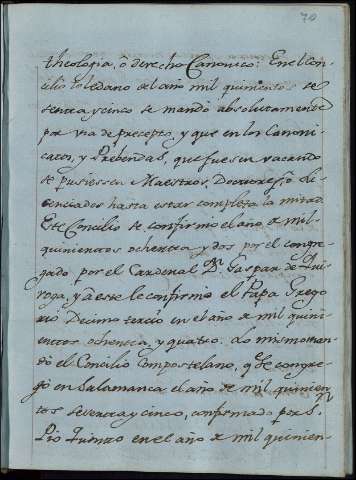 70
theologia, ô derecho Canonico: En el Con-
cilio toledano del año mil quinientos se-
senta y cinco se mandó absolutamente
por via de precepto, y que en los Canoni-
catos, y Prebendas, que fuesen vacando
se pusiessen Maestros, Doctores, ô Li-
cenciados hasta estar completa la mitad.
Este Concilio se confirmo el año de mil
quinientos ochenta y dos por el congre-
gado por el Cardenal Dn. Gaspar de Qui-
roga, y â este le confirmo el Papa Grego-
rio Decimo tercio en el año de mil quini-
entos ochenta, y quatro. Lo mismo man-
dó el Concilio Compostelano, qe. se congre-
gó en Salamanca el año de mil quinien-
tos sesenta y cinco, confirmado por Sn.
Pio Quinto en el año de mil quinien-